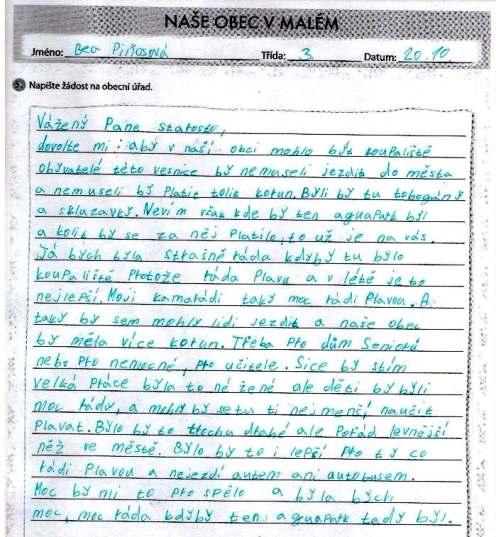 NAŠE OBEC V MALÉM
Jméno: Bea Piňosová Třída: 3. Datum: 20.10.
5. Napište žádost na obecní úřad.
Vážený Pane starosto,
dovolte mi, aby v naší obci mohlo být koupaliště
obyvatelé této vesnice by nemuseli jezdit do města
a nemuseli by Platit tolik korun. Byli by tu tobogány
a skluzavky. Nevím však kde by ten aguaPark byl
a kolik by se za něj Platilo, to už je na vás.
Já bych byla strašně ráda kdyby tu bylo
kouPaliště Protože ráda Plavu a v létě je to
nejlePší. Moji kamarádi taky moc rádi Plavou. A
taky by sem mohly lidi jezdit a naše obec
by měla více korun. Třeba Pro dům Seniorů
nebo Pro nemocné, Pro učitele. Sice by stím
velká Práce byla to né že né ale děti by byli
moc rády, a mohly by se tu ti nejmenčí naučit
Plavat. Bylo by to trochu drahé ale Pořád levnější
něž ve městě. Bylo by to i lepší Pro ty co
rádi Plavou a nejezdí autem ani autobusem.
Moc by mi to Pro spělo a byla bych
moc, moc ráda kdyby ten aguaPark tady byl.